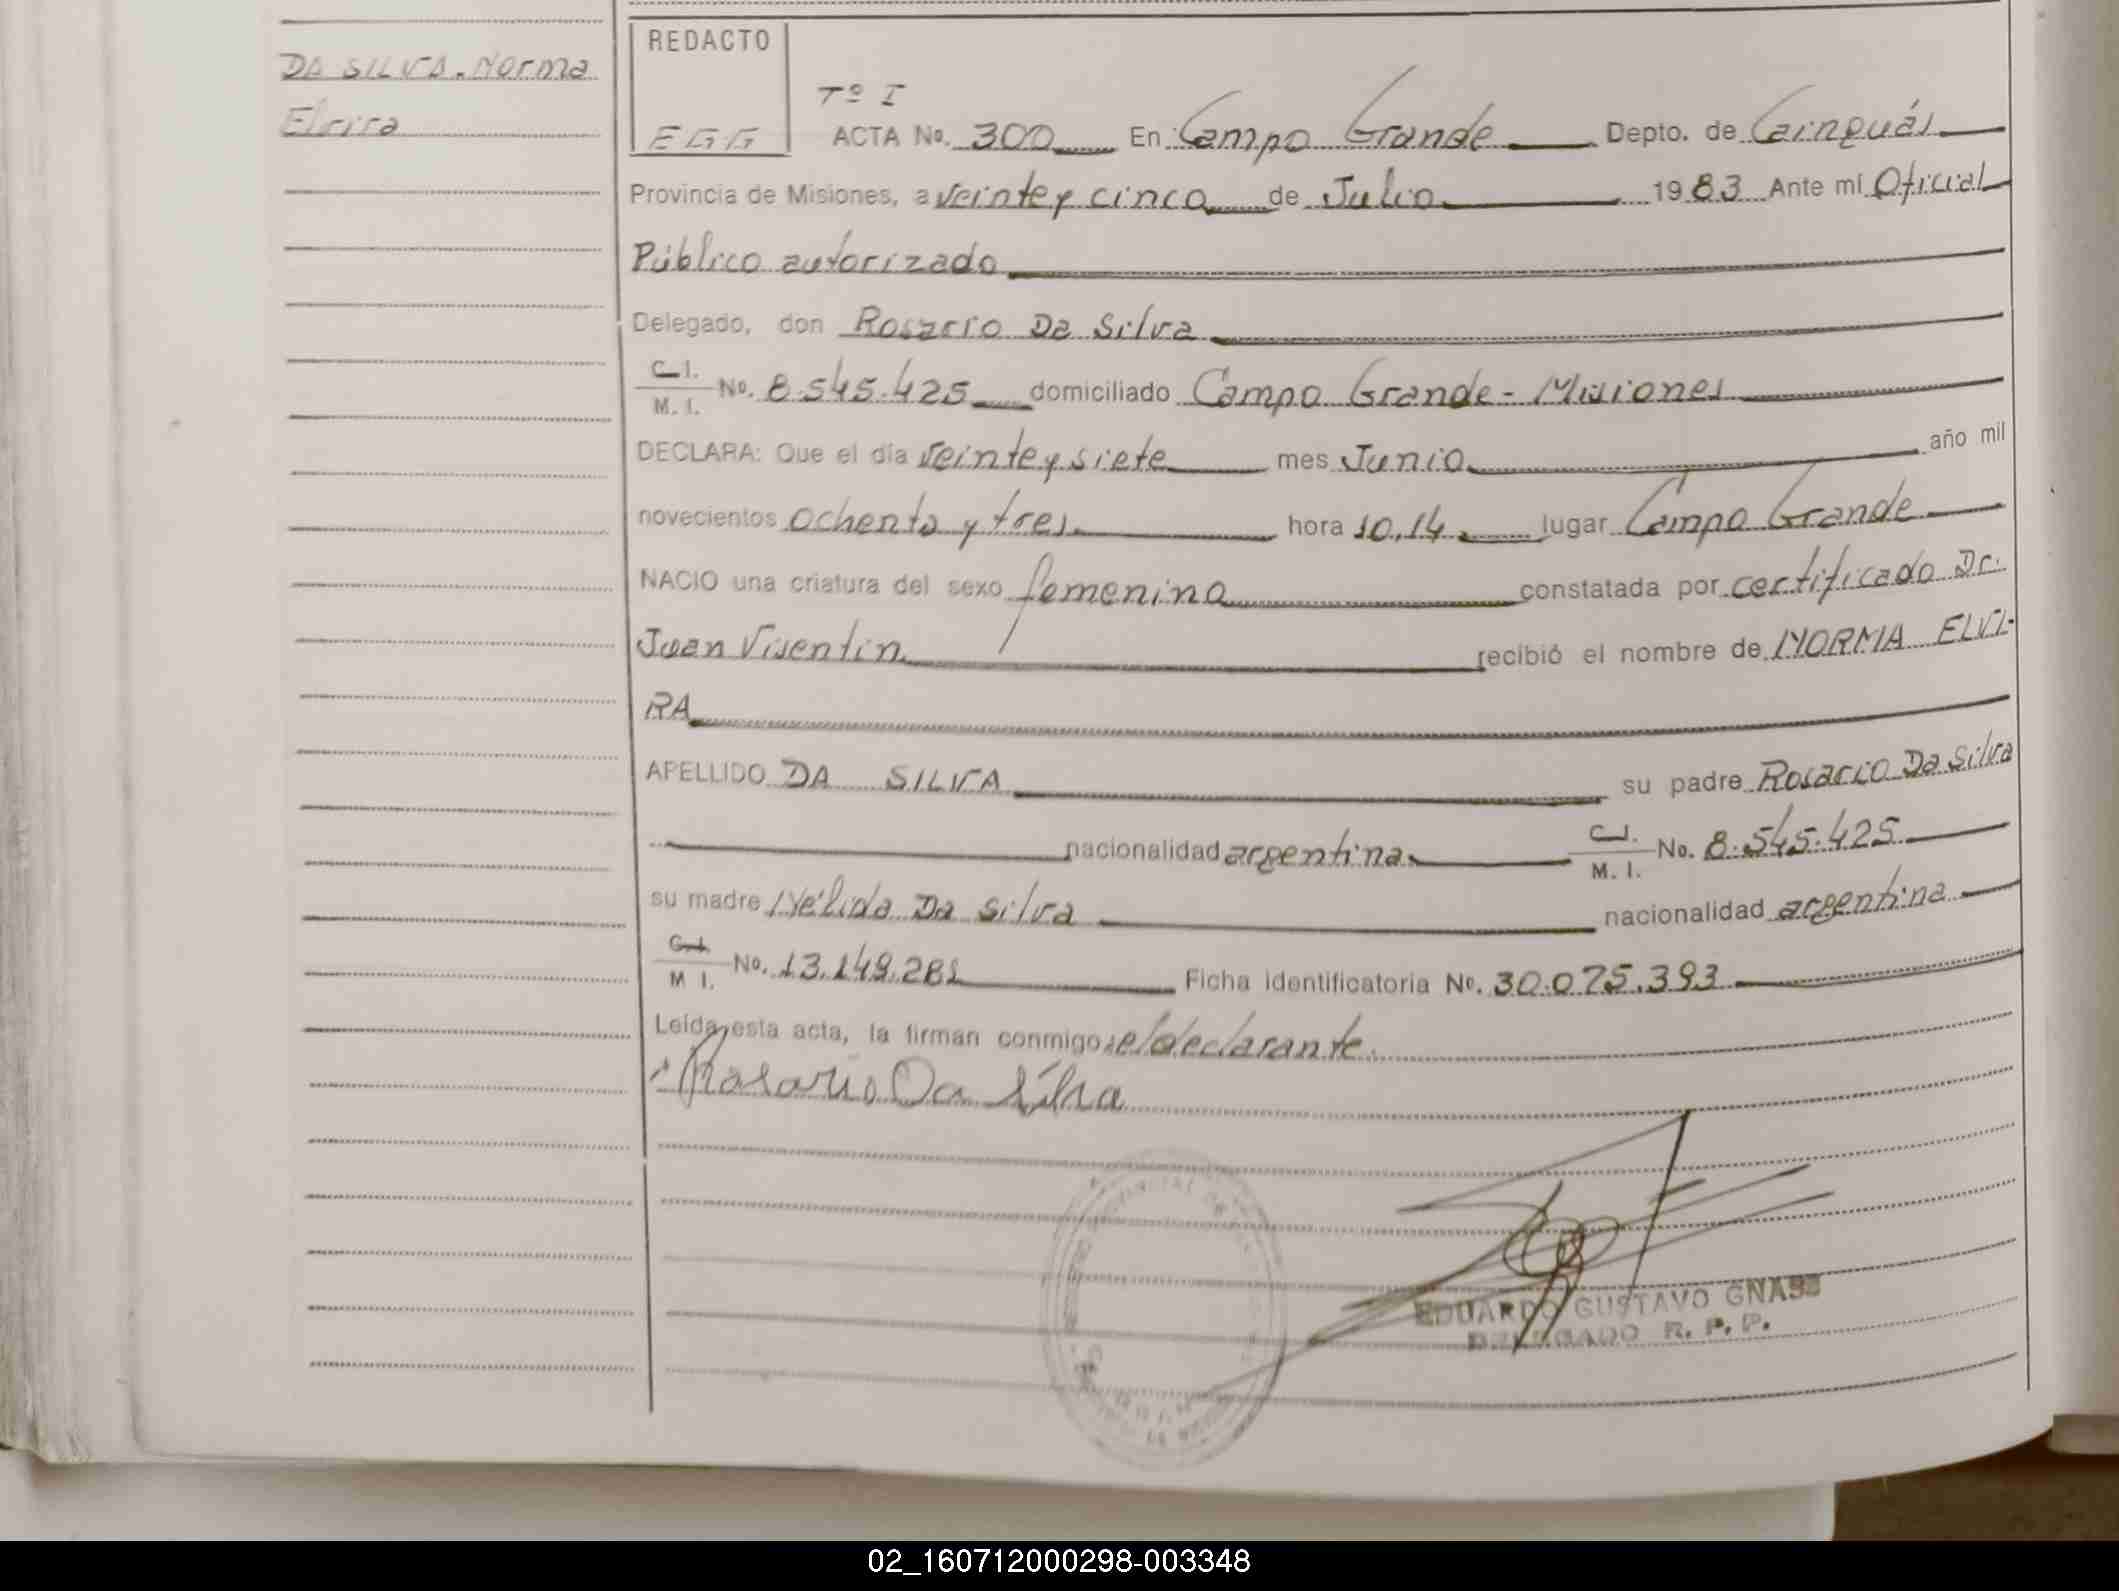 DA SILVA. Norma
Elvira
REDACTO
EGG
Tº I
ACTA No. 300 En Campo Grande Depto. de Cainguás
Provincia de Misiones, a veinte y cinco de Julio 1983 Ante mí Oficial
Público autorizado
Delegado, don Rosario Da Silva
C.I. / M. I. No. 8.545.425 domiciliado Campo Grande - Misiones
DECLARA: Que el día veinte y siete mes Junio año mil
novecientos ochenta y tres hora 10,14 lugar Campo Grande
NACIO una criatura del sexo femenino constatada por certificado Dr.
Juan Visentin recibió el nombre de NORMA ELVI-
RA
APELLIDO DA SILVA su padre Rosario Da Silva
nacionalidad argentina C.I. / M. I. No. 8.545.425
su madre Nélida Da Silva nacionalidad argentina
C.I. / M I. No. 13.149.281 Ficha identificatoria No. 30.075.393
Leída esta acta, la firman conmigo: el declarante.
Rosario Da Silva
EDUARDO GUSTAVO GNASS
DELEGADO R. P. P.
02_160712000298-003348